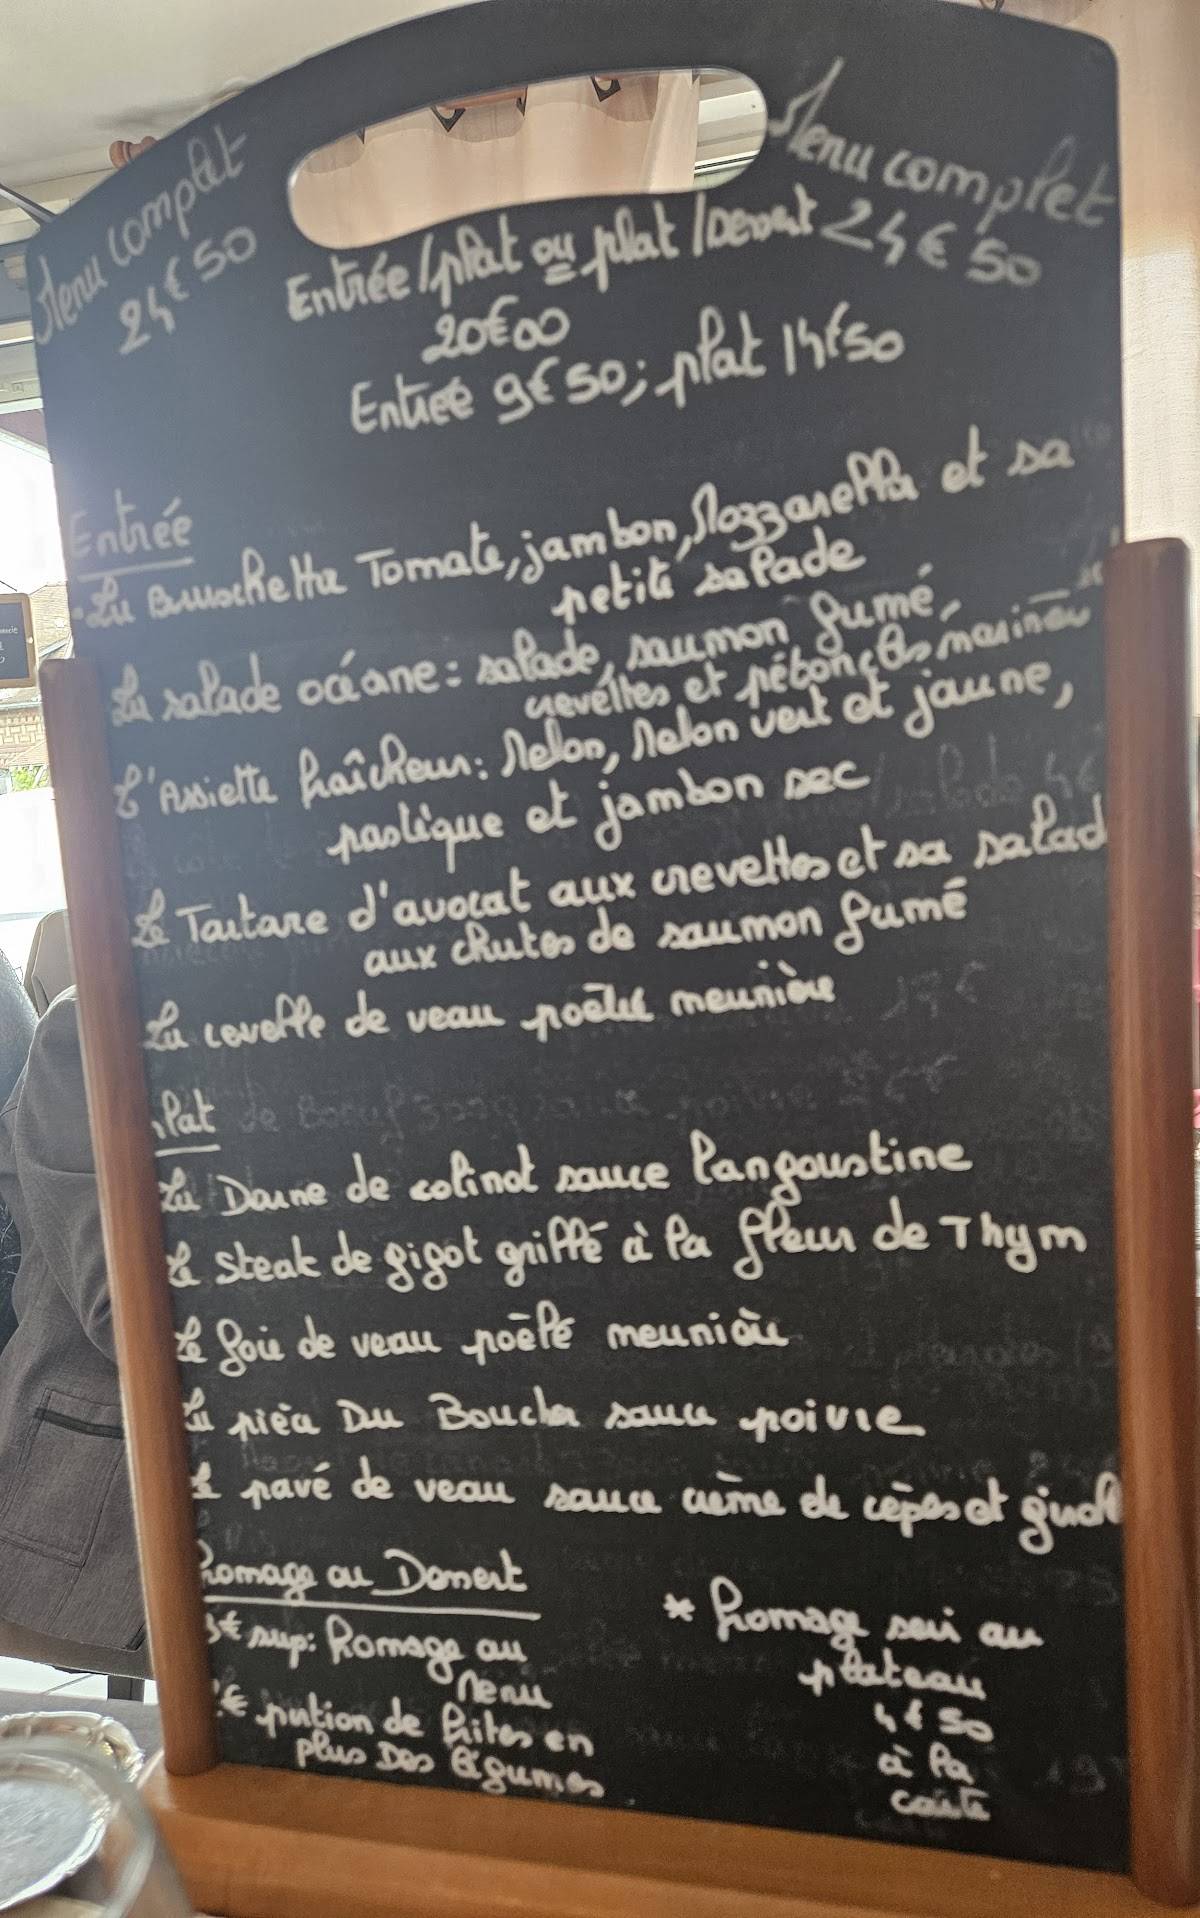 Menu complet
24€50
Menu complet
24€50
Entrée/plat ou plat/Dessert
20€00
Entrée 9€50; plat 14€50
Entrée
La Bruschetta Tomate, jambon, Mozzarella et sa
petite salade
La salade océane: salade, saumon fumé,
crevettes et pétoncles marinés
L'Assiette fraîcheur: Melon, Melon vert et jaune,
pastèque et jambon sec
Le Tartare d'avocat aux crevettes et sa salad
aux chutes de saumon fumé
La cervelle de veau poêlée meunière
Plat
La Darne de colinot sauce langoustine
Le Steak de gigot grillé à la fleur de Thym
Le foie de veau poêlé meunière
La pièce Du Boucher sauce poivre
Le pavé de veau sauce crème de cèpes et giroll
Fromage ou Dessert
3€ sup: fromage au
Menu
€ portion de frites en
plus Des légumes
* fromage seri au
plateau
4€50
à la
carte